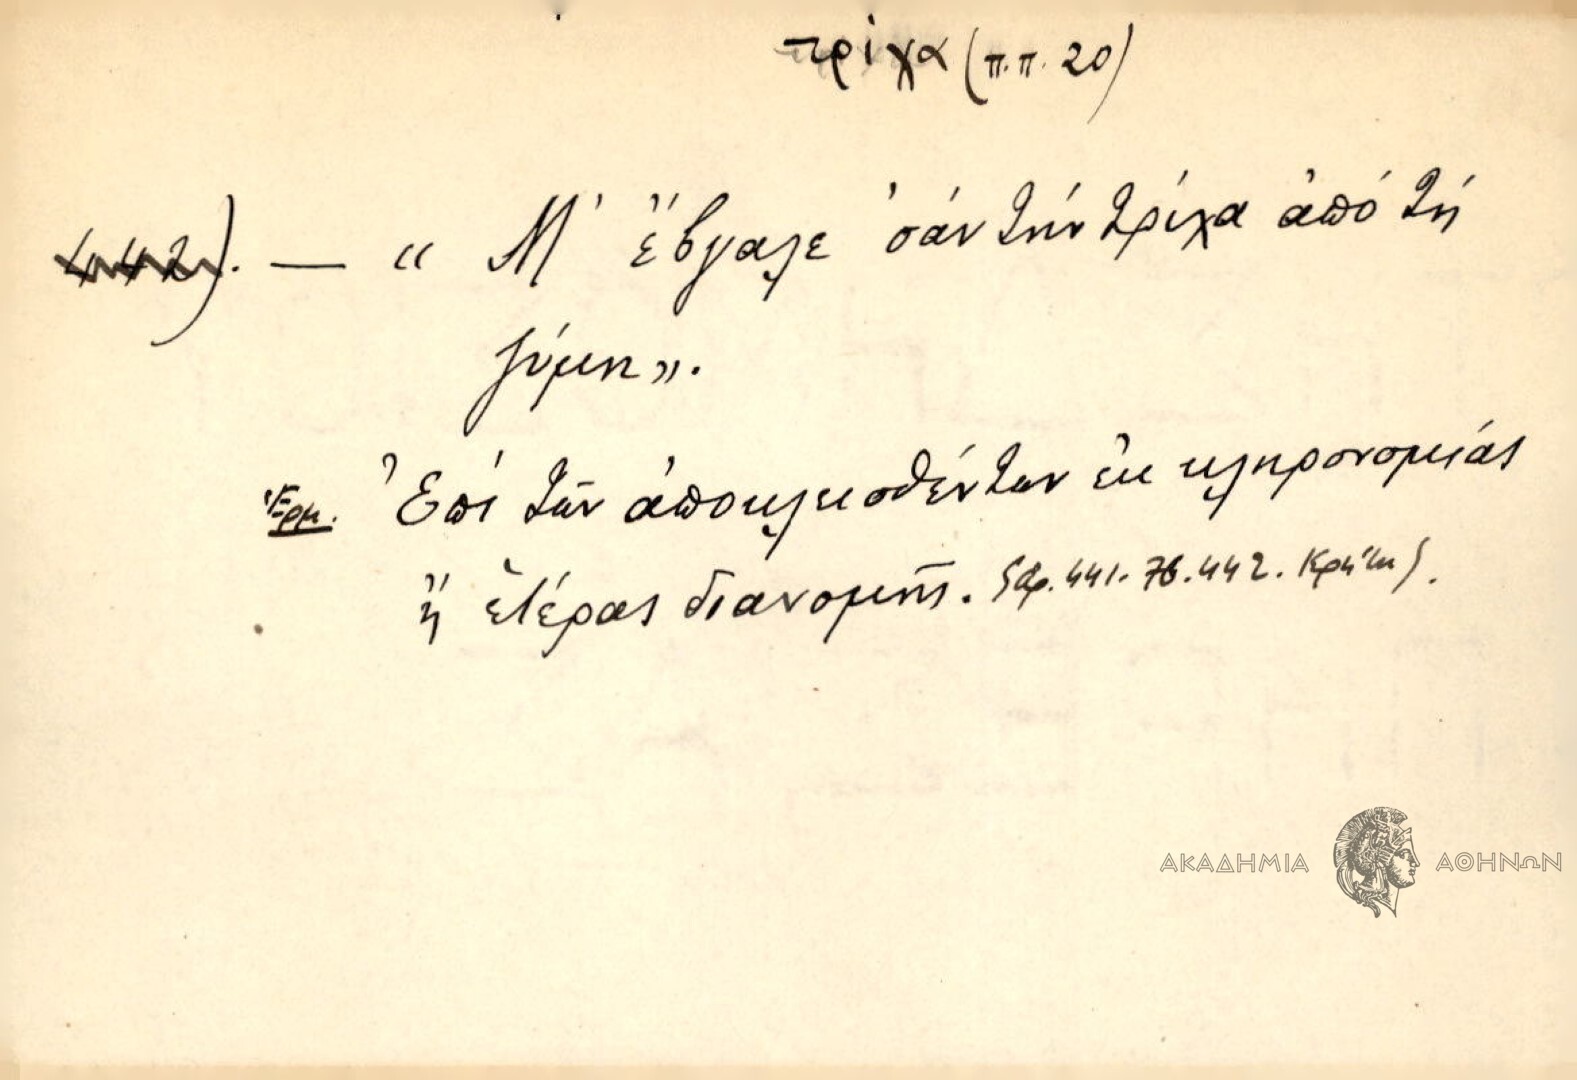 τρίχα (π.π. 20)
442). — « Μ' ἔβγαλε σάν τήν τρίχα ἀπό τή
ζύμη ».
Ἑρμ. Ἐπί τῶν ἀποκλεισθέντων ἐκ κληρονομίας
ἤ ἑτέρας διανομῆς. (Ἀρ. 441. 76. 442. Κρήτη).
ΑΚΑΔΗΜΙΑ ΑΘΗΝΩΝ